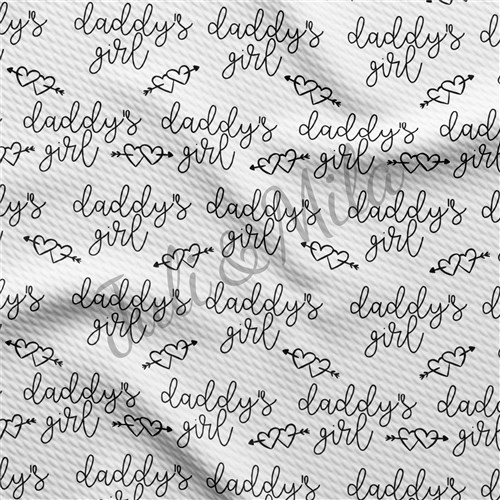 daddy's daddy's daddy's
girl girl girl
daddy's daddy's daddy's
girl girl girl
daddy's daddy's daddy's
girl girl girl
& Mila
daddy's daddy's daddy's
girl girl girl
daddy's daddy's daddy's
girl girl girl
daddy's daddy's daddy's
girl girl girl